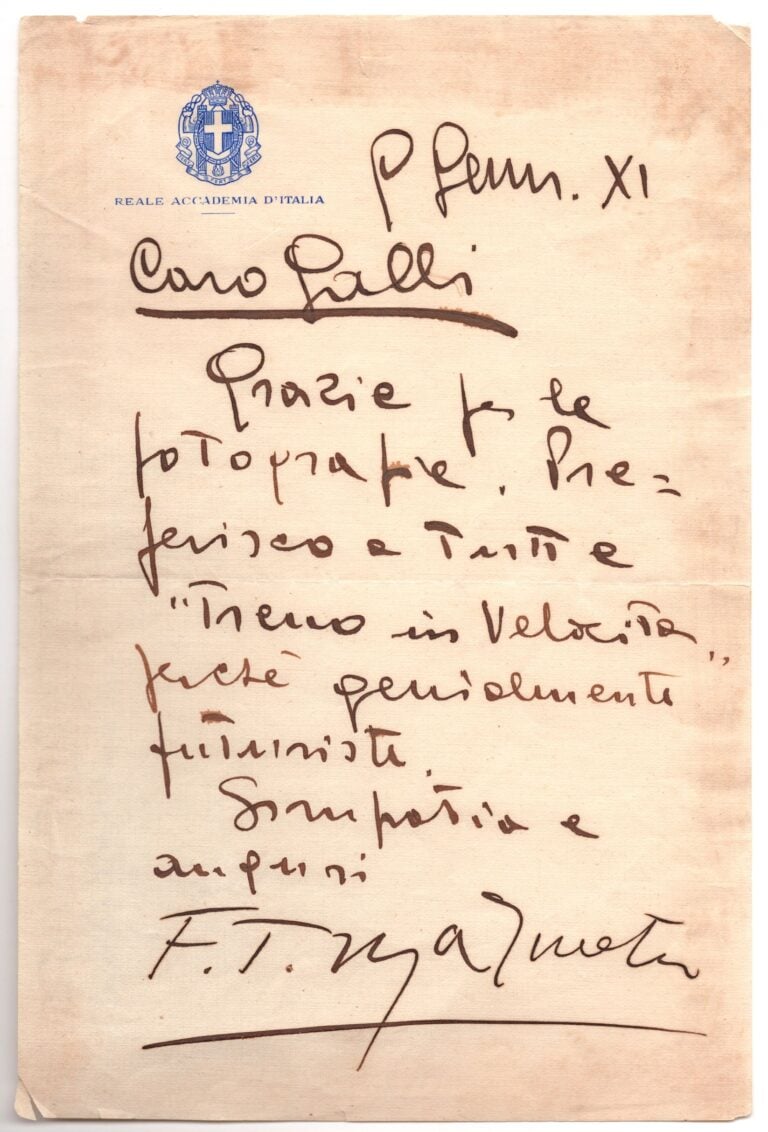 REALE ACCADEMIA D'ITALIA
Genn. XI
Caro Galli
Grazie per le
fotografie. Pre=
ferisco a tutte
"Treno in Velocità"
perchè genialmente
futurista.
Simpatia e
auguri
F. T. Marinetti